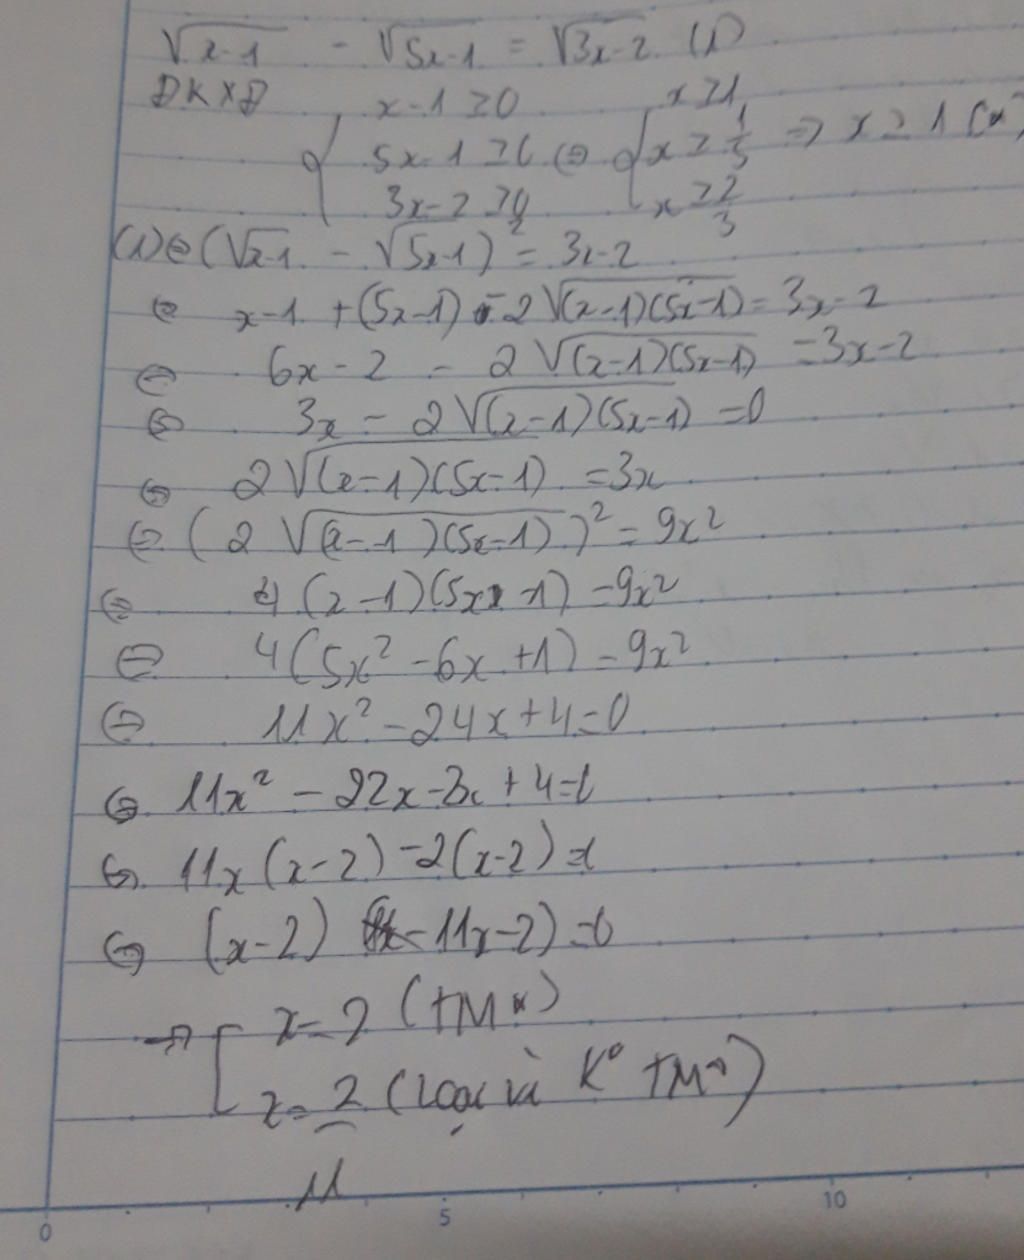 √(x-1) - √(5x-1) = √(3x-2) (1)
ĐKXĐ { x-1 ≥ 0 x ≥ 1
5x-1 ≥ 0 ⇔ { x ≥ 1/5 ⇒ x ≥ 1 (*)
3x-2 ≥ 0 x ≥ 2/3
(1) ⇔ (√(x-1) - √(5x-1))² = 3x-2
⇔ x-1 + (5x-1) - 2√((x-1)(5x-1)) = 3x-2
⇔ 6x-2 - 2√((x-1)(5x-1)) = 3x-2
⇔ 3x - 2√((x-1)(5x-1)) = 0
⇔ 2√((x-1)(5x-1)) = 3x
⇔ (2√((x-1)(5x-1)))² = 9x²
⇔ 4(x-1)(5x-1) = 9x²
⇔ 4(5x²-6x+1) = 9x²
⇔ 11x²-24x+4=0
⇔ 11x² - 22x-2x+4=0
⇔ 11x(x-2)-2(x-2)=0
⇔ (x-2) (11x-2)=0
⇒ [ x=2 (TM*)
x=2/11 (loại vì K° TM*)
0 5 10